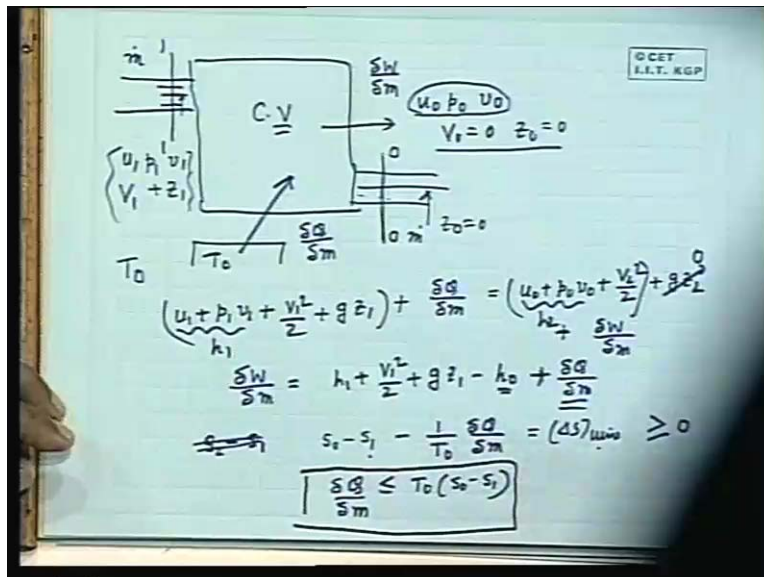 © CET
I.I.T. KGP
ṁ 1
C.V
δW/δm
u₀ p₀ v₀
V₀ = 0 z₀ = 0
1
{u₁ p₁ v₁
V₁ + z₁}
0
0 ṁ z₀ = 0
T₀
T₀
δQ/δm
(u₁ + p₁ v₁ + V₁²/2 + g z₁) + δQ/δm = (u₀ + p₀ v₀ + V₂²/2) + g z₂ 0
h₁
h₂ + δW/δm
δW/δm = h₁ + V₁²/2 + g z₁ - h₀ + δQ/δm
s₂ - s₁ s₀ - s₁ - 1/T₀ δQ/δm = (ΔS)univ ≥ 0
δQ/δm ≤ T₀ (s₀ - s₁)